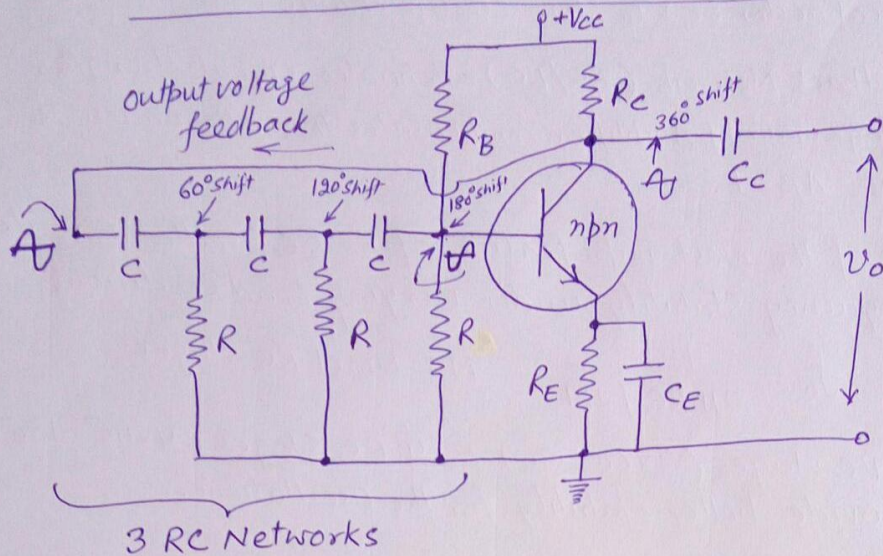 +Vcc
output voltage
feedback
RB
RC
360° shift
CC
60° shift
120° shift
180° shift
C
C
C
npn
vo
R
R
R
RE
CE
3 RC Networks